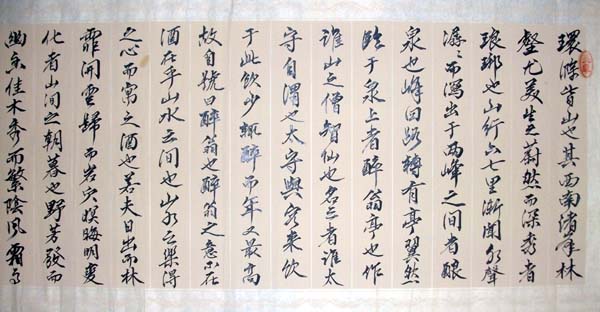 環滁皆山也其西南諸峯林
壑尤美望之蔚然而深秀者
琅琊也山行六七里漸聞水聲
潺々而瀉出于兩峰之間者釀
泉也峰回路轉有亭翼然
臨于泉上者醉翁亭也作
誰山之僧智仙也名之者誰太
守自謂也太守與客來飲
于此飲少輒醉而年又最高
故自號曰醉翁也醉翁之意不在
酒在乎山水之間也山水之樂得
之心而寓之酒也若夫日出而林
霏開雲歸而岩穴暝晦明變
化者山間之朝暮也野芳發而
幽香佳木秀而繁陰風霜高